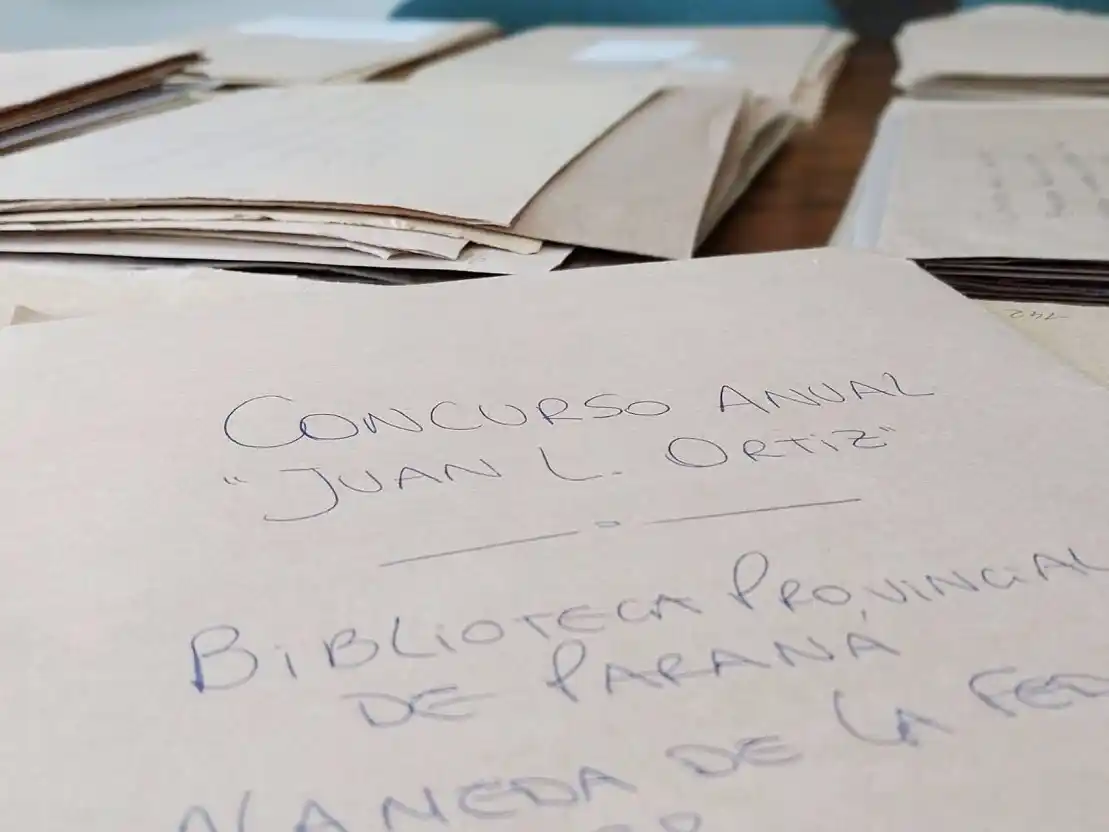 CONCURSO ANUAL
"JUAN L. ORTIZ"
BIBLIOTECA PROVINCIAL
DE PARANÁ
ALAMEDA DE LA FED